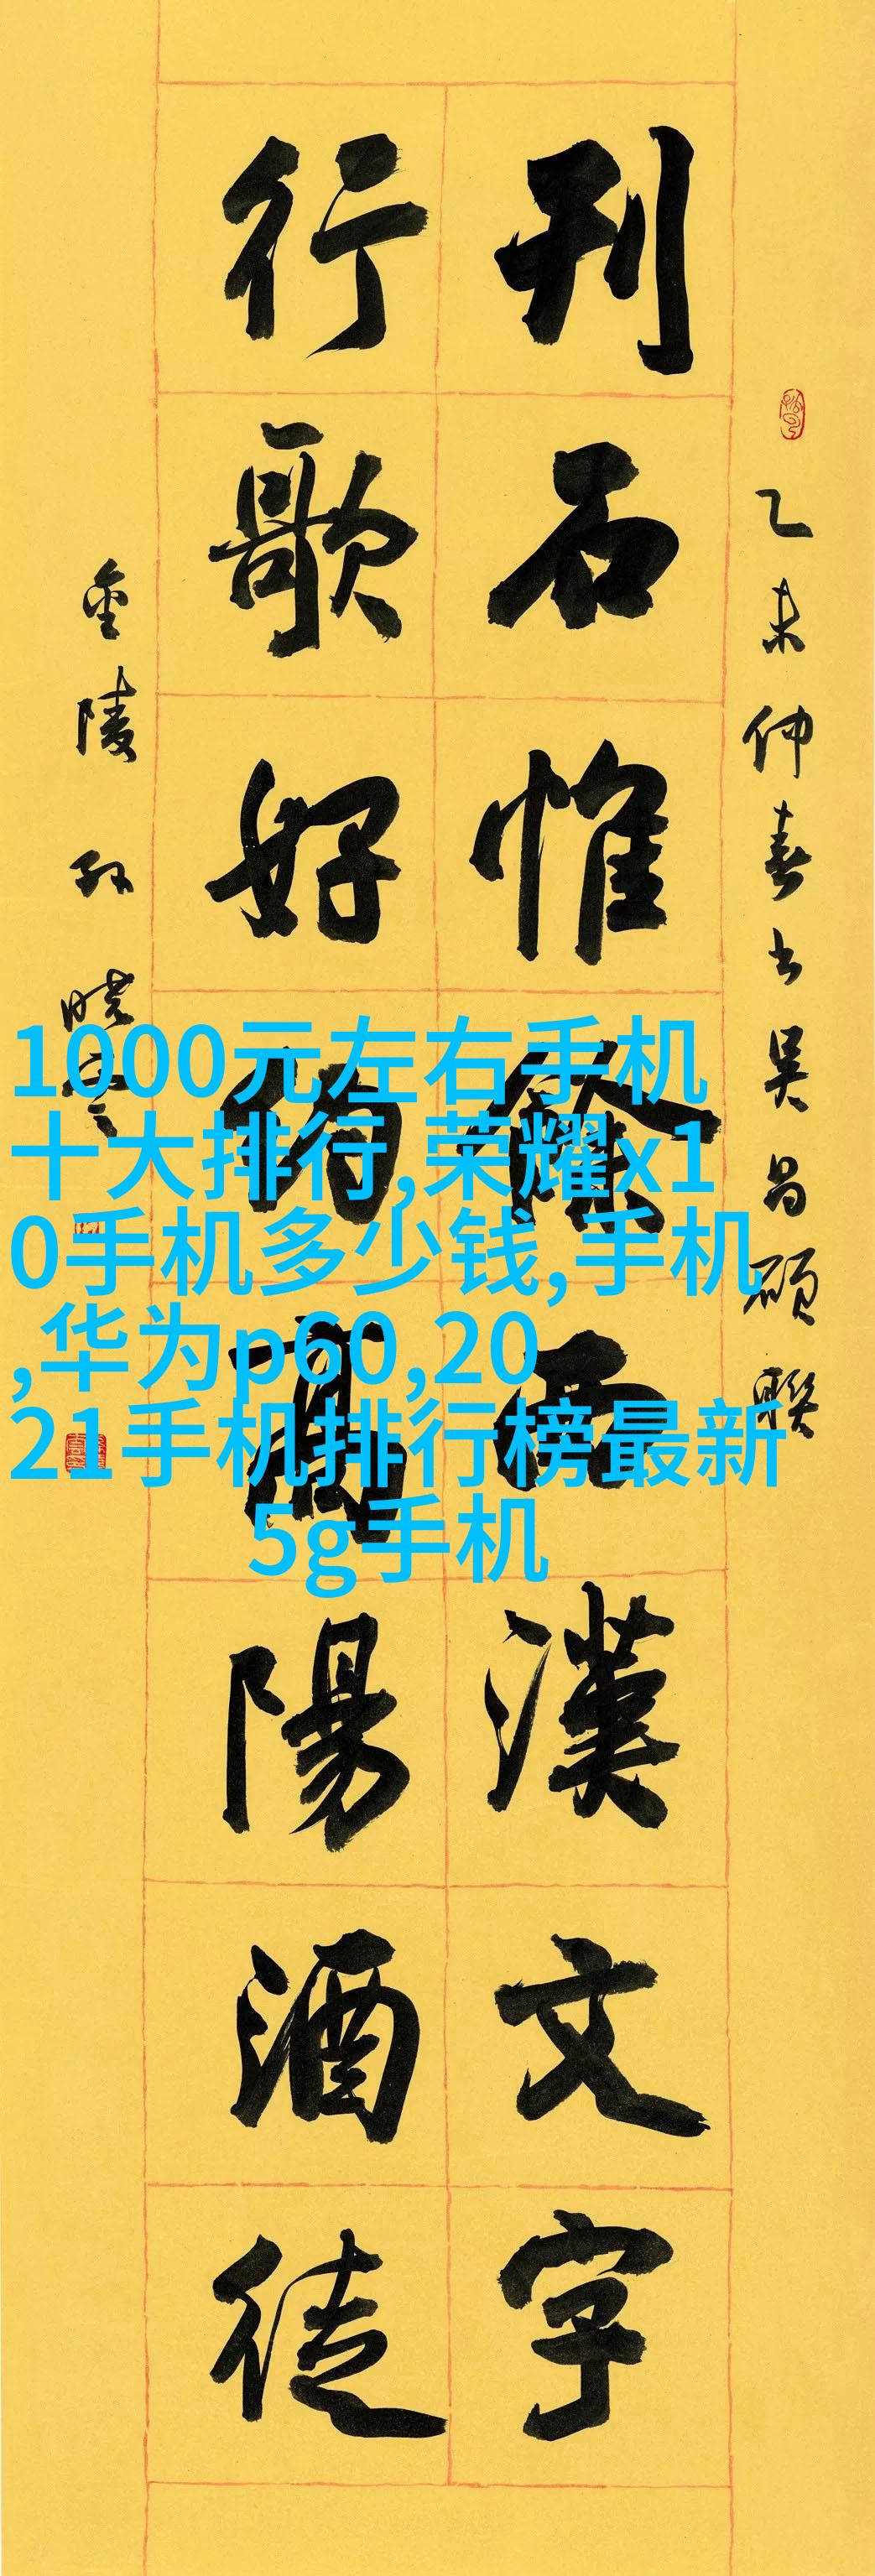 乙未仲春书吴昌硕聯
刊石惟餘西漢文字
行歌好約高陽酒徒
金陵孙晓云
1000元左右手机
十大排行,荣耀x1
0手机多少钱,手机
,华为p60,20
21手机排行榜最新
5g手机